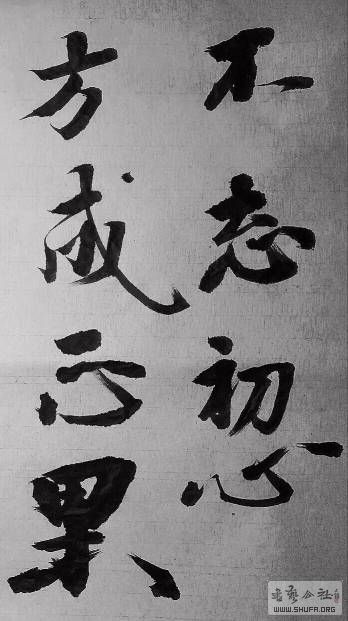 不忘初心
方成正果
书艺公社
WWW.SHUFA.ORG